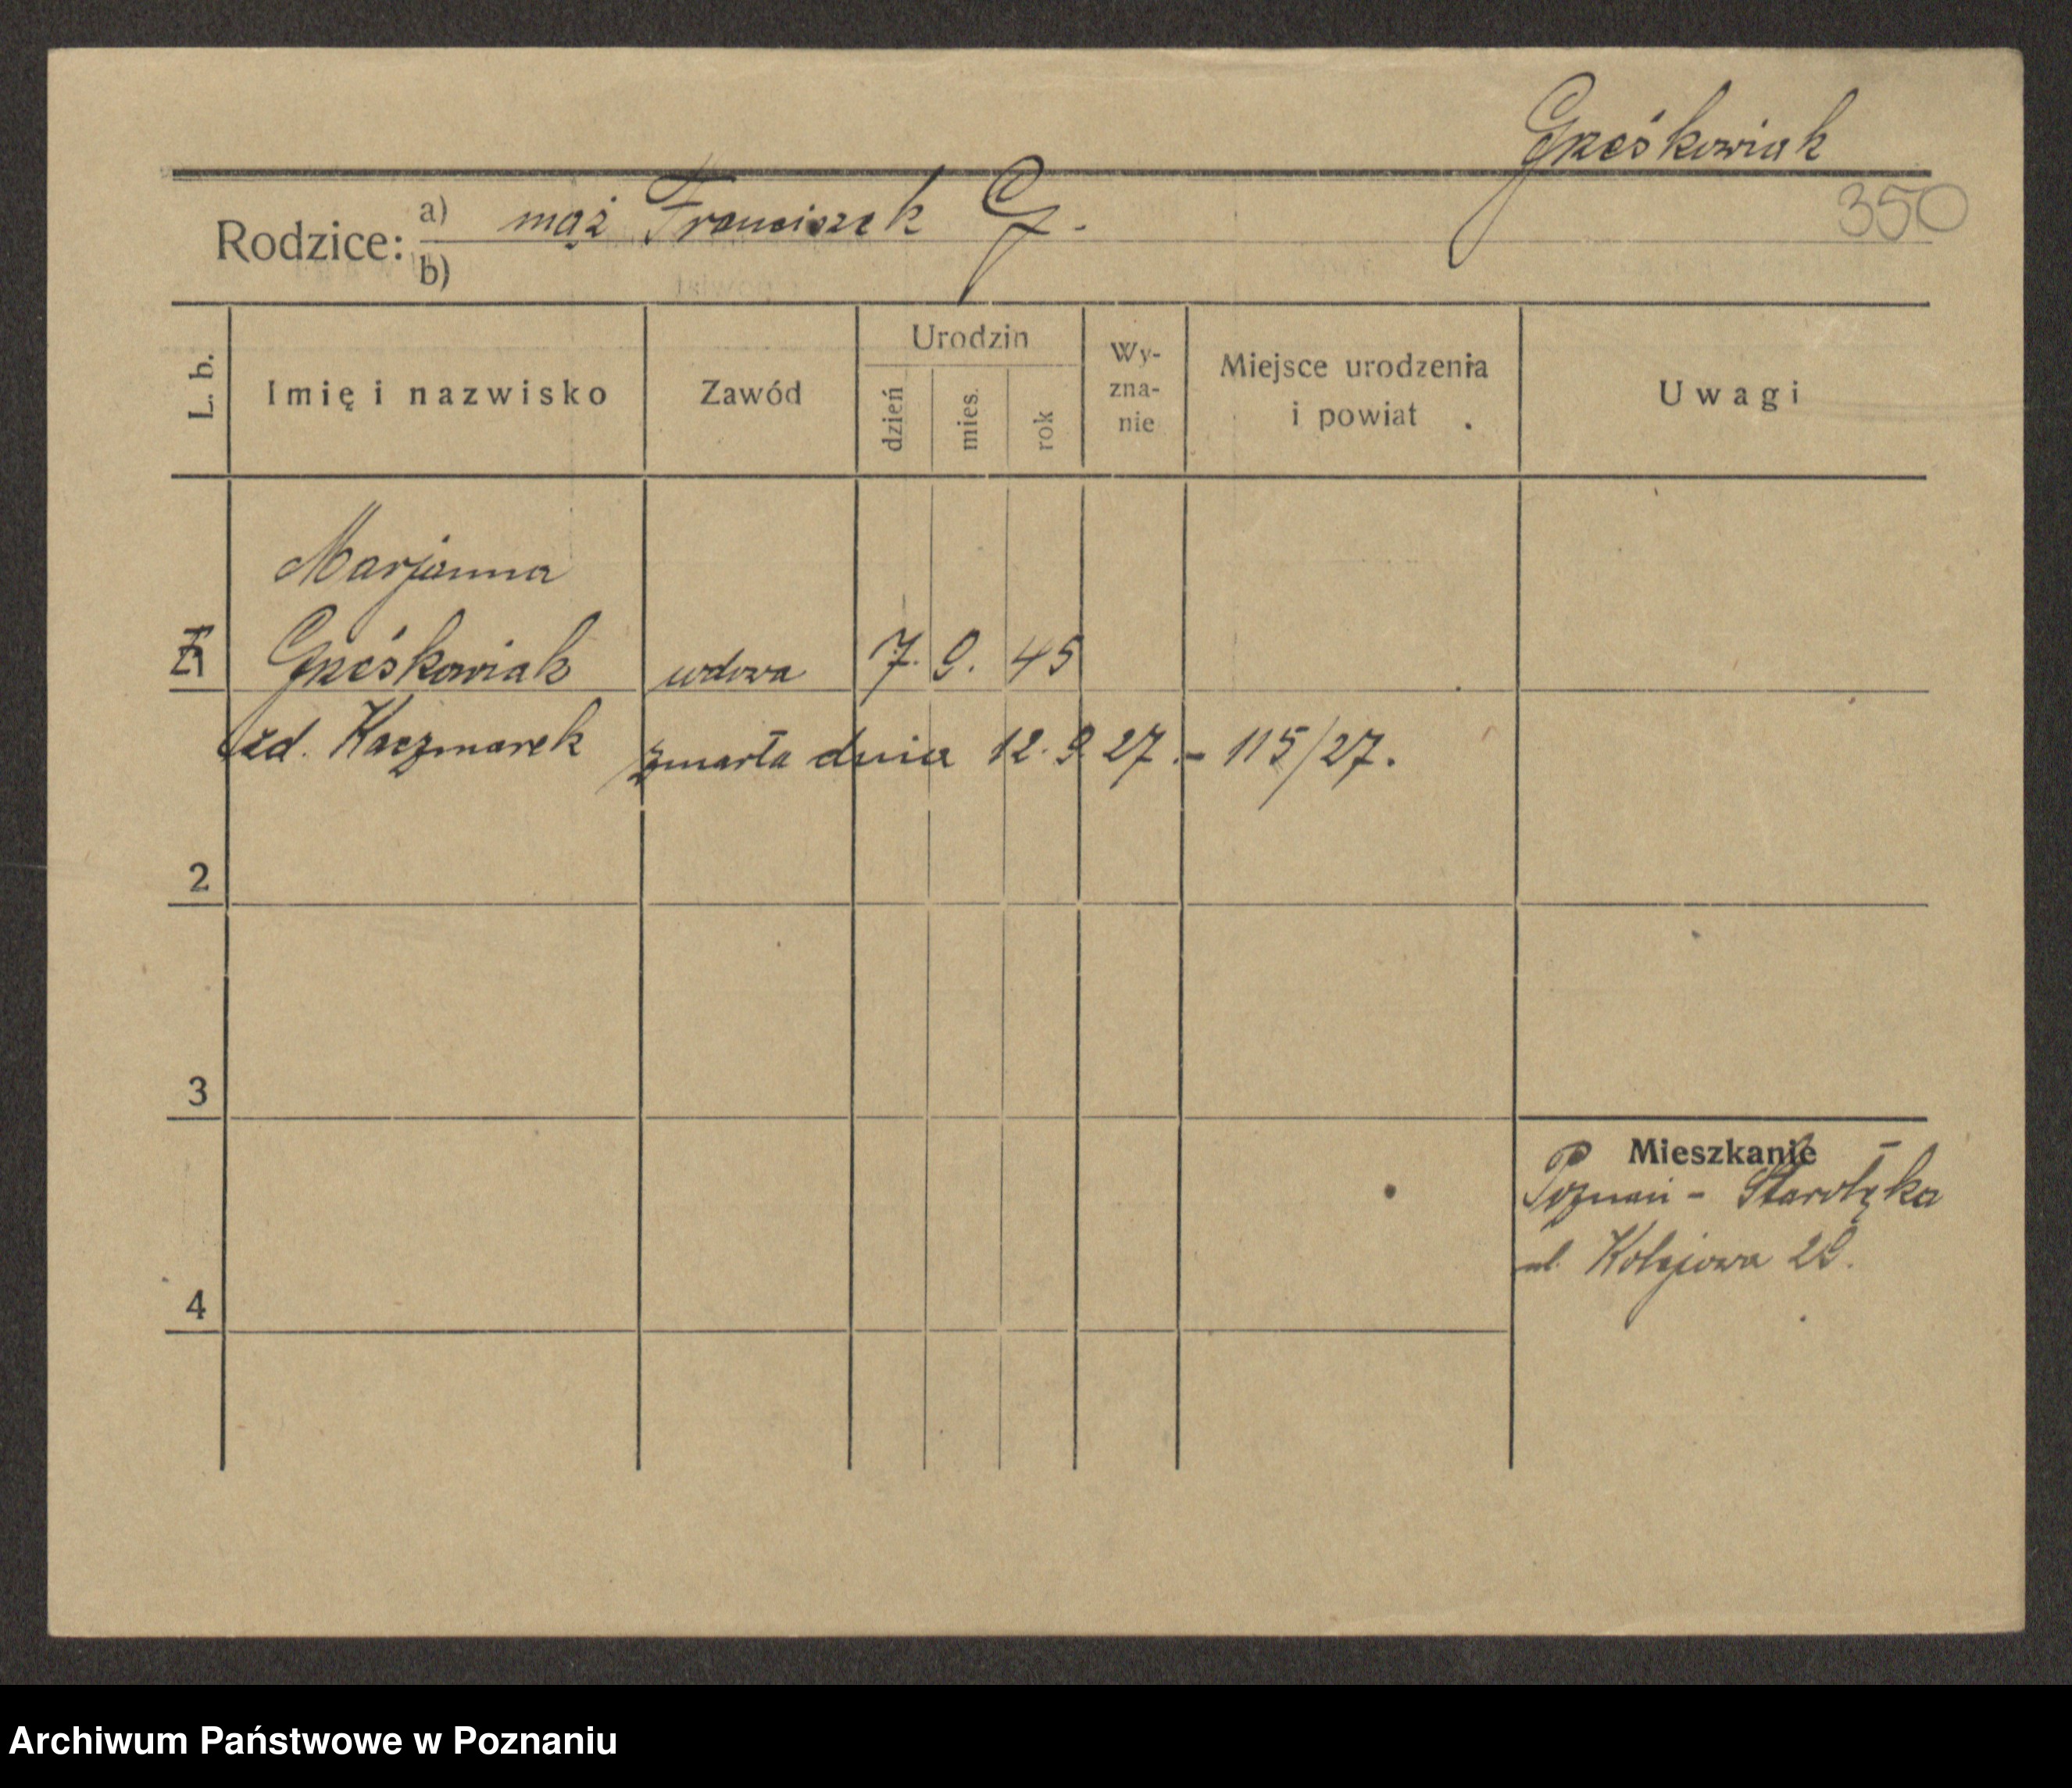 Grześkowiak
350
Rodzice: a) mąż Franciszek G.
b)
L. b.
Imię i nazwisko
Zawód
Urodzin
dzień
mies.
rok
Wy-
zna-
nie
Miejsce urodzenia
i powiat
Uwagi
Marjanna
Grześkowiak wdowa 7. 9. 45
uzd. Kaczmarek zmarła dnia 12. 9. 27. - 115/27.
2
3
4
Mieszkanie
Poznań - Starołęka
ul. Kolejowa 29.
Archiwum Państwowe w Poznaniu